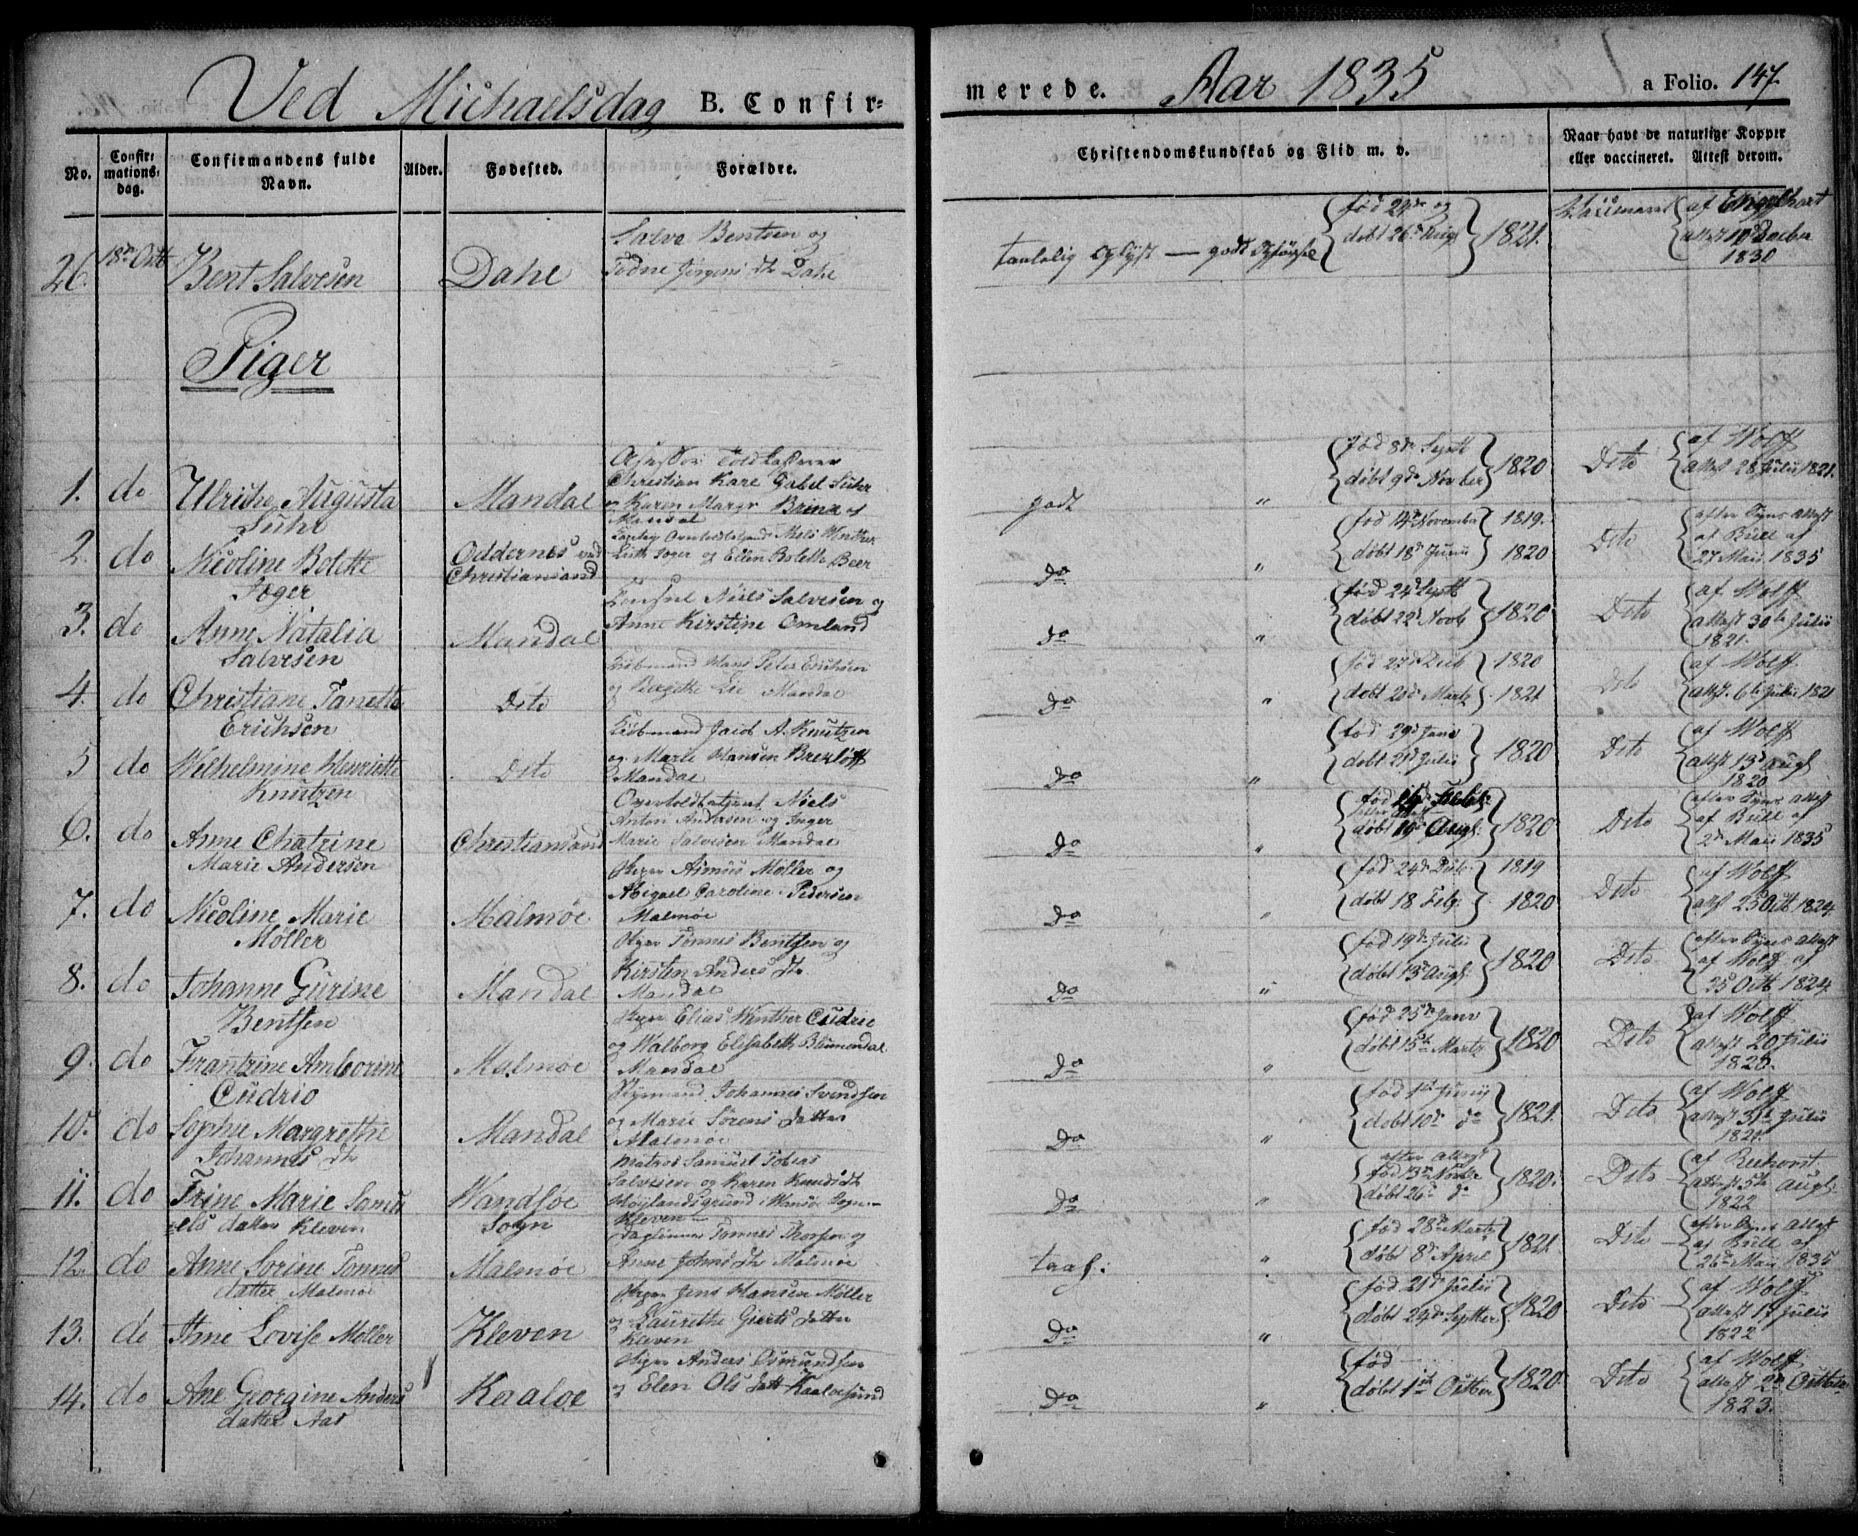 Ved Michaelsdag B. Confir=
merede. Aar 1835 a Folio. 147.
No.
Confir=
mations=
dag.
Confirmandens fulde
Navn.
Alder.
Fødested.
Forældre.
Christendomskundskab og Flid m. v.
Naar havt de naturlige Kopper
eller vaccineret. Attest derom.
26. 18de Octb Bent Salvesen Dahl
Salve Bentsen og
Jørgens Dtr Dahl
født 24de og
døbt 26de Aug. 1821.
af Engelhart
attest 10de Decbr
1830
Piger
1. do Ulriche Augusta
Suhr
Mandal
Christian Karl Gabel Suhr
og Karen Margr Brinch
Mandal
godt "
fød 8de Septb
døbt 9de Novber 1820
Dito
af Wolff
attest 28 Julii 1821.
2. do Nicoline Bolette
Oddernes ved
Christiansand
og Ellen Bolette Beer
do "
fød 14de November 1819.
døbt 18de Junii 1820
Dito
efter Syns attest
af Bull af
27 Maii 1835
3. do Anne Natalia
Salvesen
Mandal
Consul Niels Salvesen og
Anne Kirstine Omland
do "
fød 24de Septb
døbt 22de Novb 1820
Dito
af Wolff
attest 30te Julii
1821.
4. do Christiane Tanette
Erichsen
Dito
Kiøbmand Hans Peter Erichsen
og Bergitte Lie Mandal
do "
1820
døbt Marts 1821
Dito
af Wolff
attest. 6te Julii 1821
5 do Wilhelmine Henriette
Knutzen
Dito
Kiøbmand Jacob A. Knutzen
og Marie Hansen
Mandal
do "
fød 29de Janr
døbt Julii 1820
Dito
af Wolff
attest 13de Augt
1820
6. do Anne Chatrine
Marie Andersen
Christiansand
Niels
Anton Andersen og Inger
Marie Salvesen Mandal
do "
døbt 19de Augt. 1820
Dito
efter Syns attest
af Bull af
2de Maii 1835
7. do Nicoline Marie
Møller
Malmøe
Asmus Møller og
Abigael Caroline Pedersen
Malmøe
do "
fød 24de Decb. 1819
døbt 18 Febr. 1820
Dito
af Wolff
attst 25 Octb 1824
8. do Johanne Gurine
Bentsen
Mandal
Tønnes Bentsen og
Kirsten Anders Dtr
Mandal
do "
fød 19de Julii
døbt 13de Augt. 1820
Dito
efter Syns attest
af Wolff af
25 Octb 1824
9. do Frantzine Amborine
Cudrio
Malmøe
Elias Winther Cudrio
og Walborg Elisabeth Blumendal
Mandal
do "
fød 25de Janr
døbt 15de Martz 1820
Dito
af Wolff
attest 20 Julii
1820.
10. do Sophie Margrethe
Johannes Dtr
Mandal
Johannes Svendsen
og Marie Sørens Datter
Malmøe
do "
fød 1ste Junij
døbt 10de do 1821.
Dito
af Wolff
attest 31te Julii
1821.
11. do Trine Marie Samu
els datter Kleven
Wandsøe
Sogn
Matros Samuel Tobias
Salvesen og Karen Knuds Dtr
Kleven
do "
efter attest
fød 13de Novbr
døbt 26de do 1820.
Dito
attest 5te Augt.
1822
12. do Anne Sorine Tønnes
datter Malmøe
Malmøe
Tønnes Thorsen og
Anne Johns Dtr Malmøe
"
fød 28de Marts
døbt 8de April 1821.
Dito
efter Syns attest
af Bull af
26de Maii 1835
13. do Anne Lovise Møller
Kleven
Jens Hansen Møller
og Laurethe Gierts Datter
Kleven
do "
fød 21de Julii
døbt 24de Septber 1820
Dito
af Wolff
attest 17 Julii
1822
14. do Ane Georgine Anders
datter Aas
Kaaløe
Anders Osmundsen
og Elen Ols Datt Kaaløesund
do "
fød
døbt 1ste Octber 1820
Dito
af Wolff
attest 2de Octber
1823.